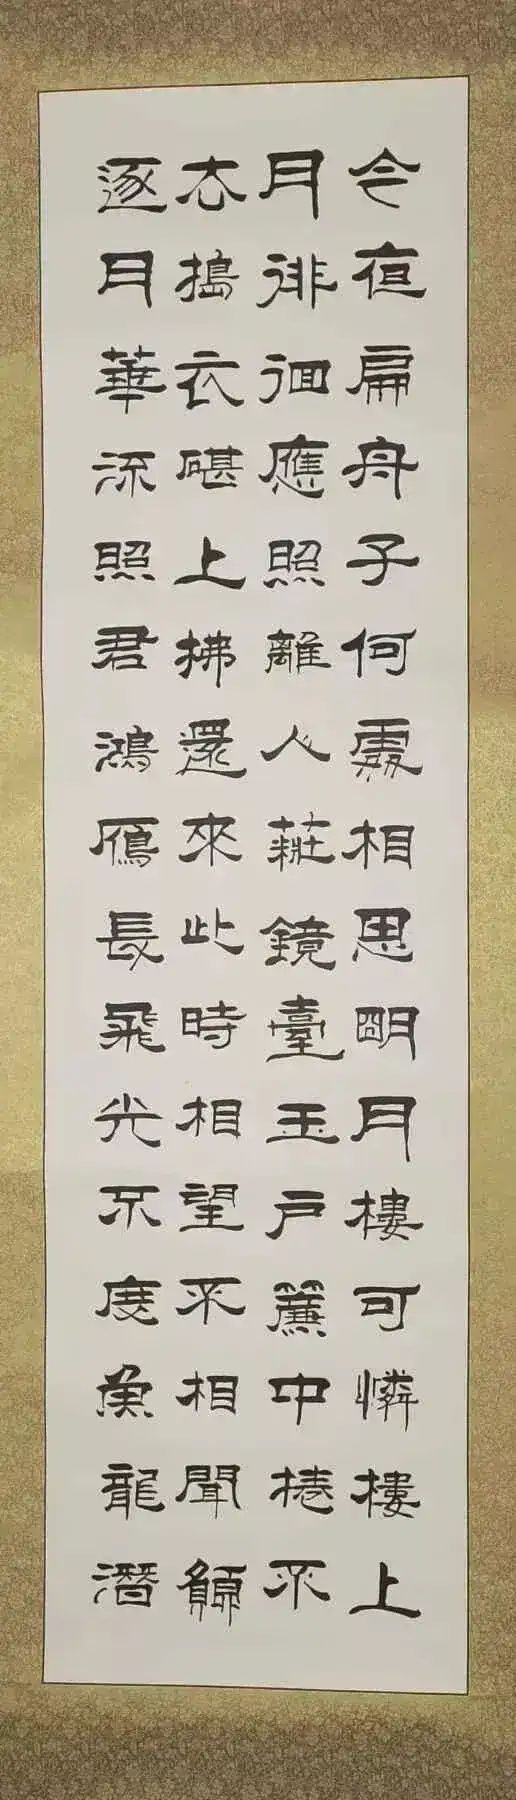 今夜扁舟子何處相思明月樓可憐樓上
月徘徊應照離人莊鏡臺玉戶簾中捲不
去搗衣碪上拂還來此時相望不相聞願
逐月華流照君鴻鴈長飛光不度魚龍潛